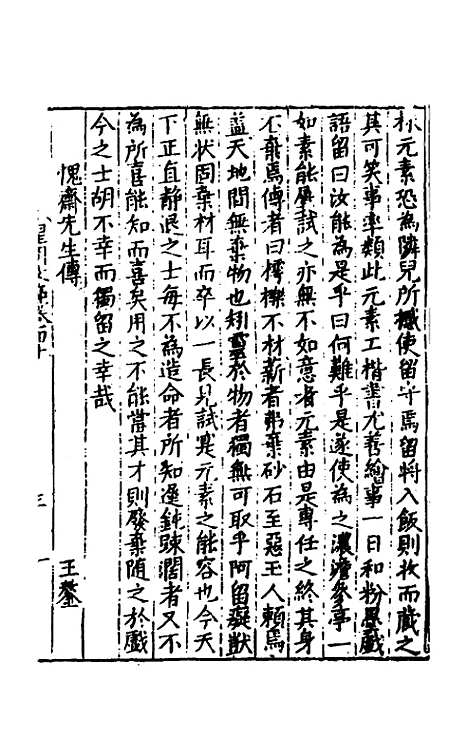 林元素恐為隣兒所撼使留守焉留將入飯則收而藏之
其可笑事率類此元素工楷書尤善繪事一日和粉墨戲
語留曰汝能為是乎曰何難乎是遂使為之濃澹參亭一
如素能屢試之亦無不如意者元素由是專任之終其身
不棄焉傳者曰樗櫟不材薪者弗棄砂石至惡玉人賴焉
蓋天地間無棄物也矧靈於物者獨無可取乎阿留癡獃
無狀固棄材耳而卒以一長見試寔元素之能容也今天
下正直静退之士每不為造命者所知遲鈍踈濶者又不
為所喜能知而喜矣用之不能當其才則廢棄隨之於戲
今之士胡不幸而獨留之幸哉
愧齋先生傳
王鏊
三